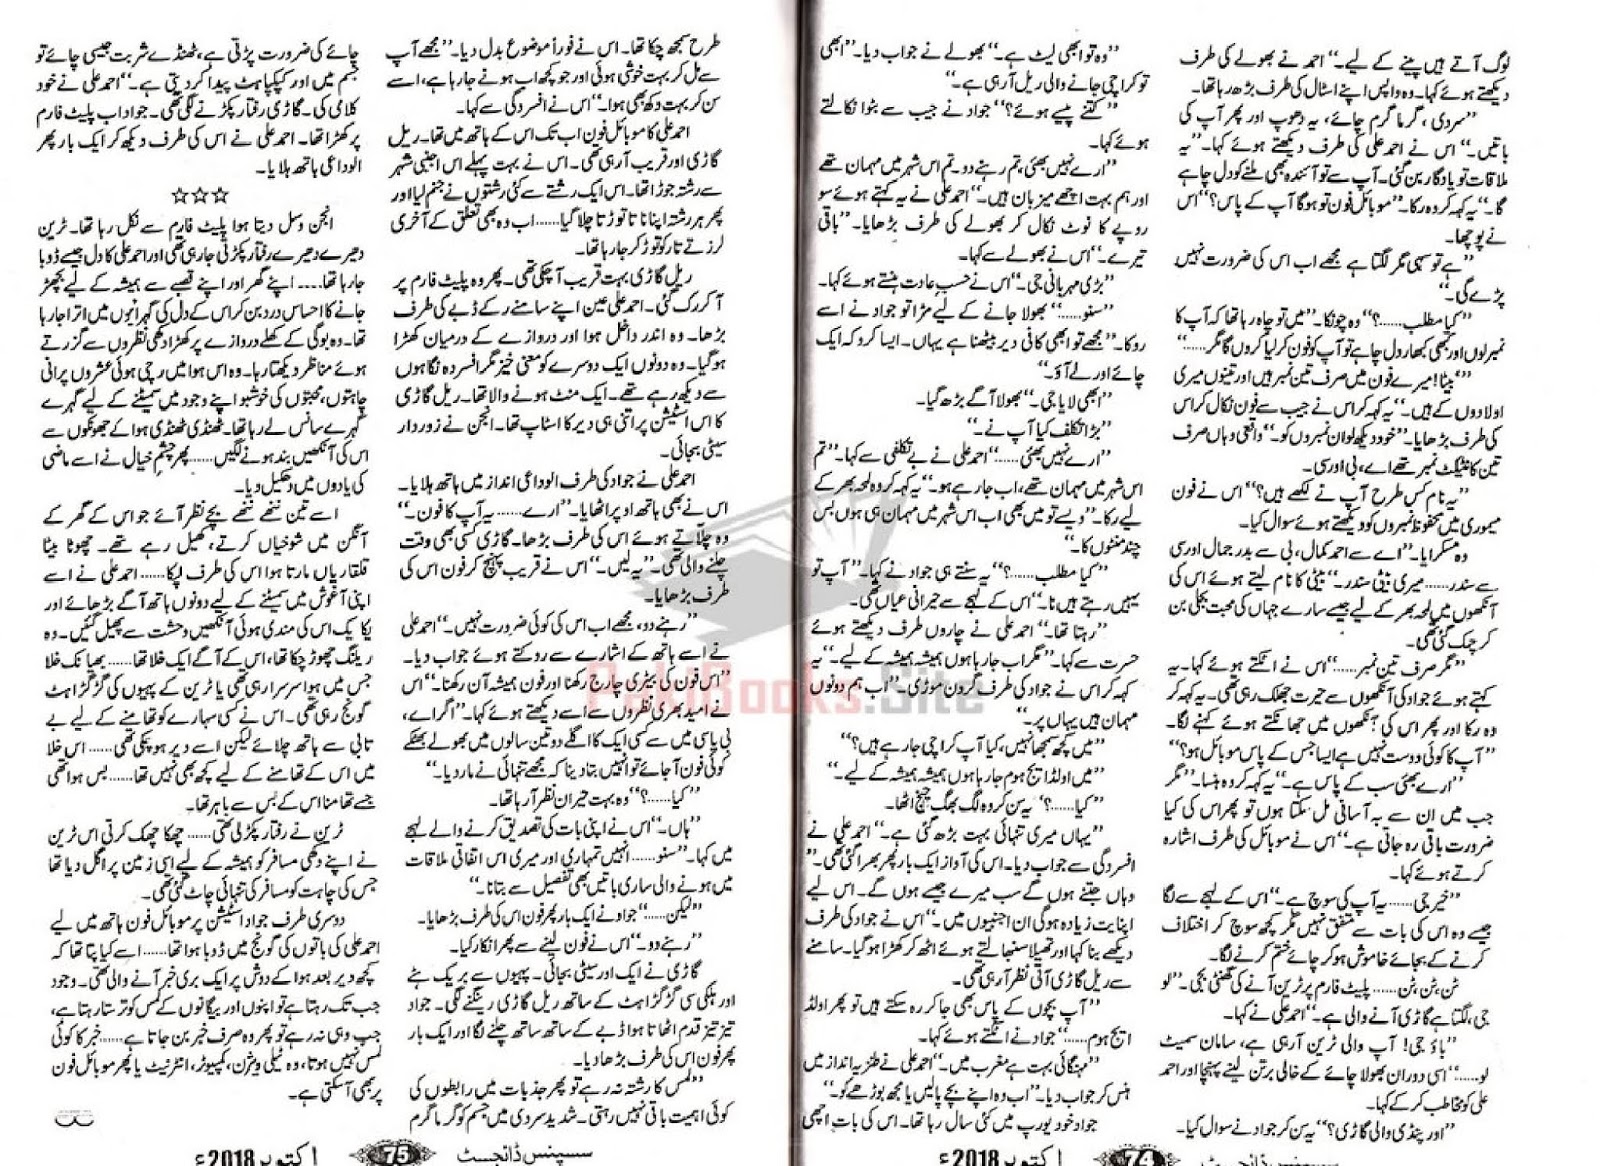 لوگ آتے ہیں پینے کے لیے۔“ احمد نے بھولے کی طرف
دیکھتے ہوئے کہا۔ وہ واپس اپنے اسٹال کی طرف بڑھ رہا تھا۔
”سردی، گرما گرم چائے، یہ دھوپ اور پھر آپ کی
باتیں۔“ اس نے احمد علی کی طرف دیکھتے ہوئے کہا۔ ”یہ
ملاقات تو یادگار بن گئی۔ آپ سے تو آئندہ بھی ملنے کو دل چاہے
گا۔“ یہ کہہ کر وہ رکا۔ ”موبائل فون تو ہوگا آپ کے پاس؟“ اس
نے پوچھا۔
”ہے تو سہی مگر لگتا ہے مجھے اب اس کی ضرورت نہیں
پڑے گی۔“
”کیا مطلب......؟“ وہ چونکا۔ ”میں تو چاہ رہا تھا کہ آپ کا
نمبر لوں اور کبھی کبھار دل چاہے تو آپ کو فون کر لیا کروں گا مگر......“
”بیٹا! میرے فون میں صرف تین نمبر ہیں اور تینوں میری
اولادوں کے ہیں۔“ یہ کہہ کر اس نے جیب سے فون نکال کر اس
کی طرف بڑھایا۔ ”خود دیکھ لو ان نمبروں کو۔“ واقعی وہاں صرف
تین کانٹیکٹ نمبر تھے اے، بی اور سی۔
”یہ نام کس طرح آپ نے لکھے ہیں؟“ اس نے فون
میموری میں محفوظ نمبروں کو دیکھتے ہوئے سوال کیا۔
وہ مسکرایا۔ ”اے سے احمد کمال، بی سے بدر جمال اور سی
سے سندر...... میری بیٹی سندر۔“ بیٹی کا نام لیتے ہوئے اس کی
آنکھوں میں لمحہ بھر کے لیے جیسے سارے جہاں کی محبت بجلی بن
کر چمک گئی تھی۔
”مگر صرف تین نمبر......“ اس نے اٹکتے ہوئے کہا۔ یہ
کہتے ہوئے جواد کی آنکھوں سے حیرت جھلک رہی تھی۔ یہ کہہ کر
وہ رکا اور پھر اس کی آنکھوں میں جھانکتے ہوئے کہنے لگا۔
”آپ کا کوئی دوست نہیں ہے ایسا جس کے پاس موبائل ہو؟“
”ارے بھئی سب کے پاس ہے۔“ یہ کہہ کر وہ ہنسا۔ ”مگر
جب میں ان سے بہ آسانی مل سکتا ہوں تو پھر اس کی کیا
ضرورت باقی رہ جاتی ہے۔“ اس نے موبائل کی طرف اشارہ
کرتے ہوئے کہا۔
”خیر جی...... یہ آپ کی سوچ ہے۔“ اس کے لہجے سے لگا
جیسے وہ اس کی بات سے متفق نہیں مگر کچھ سوچ کر اختلاف
کرنے کے بجائے خاموش ہو کر چائے ختم کرنے لگا۔
ٹن ٹن ٹن...... پلیٹ فارم پر ٹرین آنے کی گھنٹی بجی۔ ”لو
جی، لگتا ہے گاڑی آنے والی ہے۔“ احمد علی نے کہا۔
”باؤ جی! آپ والی ٹرین آ رہی ہے، سامان سمیٹ
لو......“ اسی دوران بھولا چائے کے خالی برتن لینے پہنچا اور احمد
علی کو مخاطب کر کے کہا۔
”اور پنڈی والی گاڑی؟“ یہ سن کر جواد نے سوال کیا۔
”وہ تو ابھی لیٹ ہے۔“ بھولے نے جواب دیا۔ ”ابھی
تو کراچی جانے والی ریل آ رہی ہے۔“
”کتنے پیسے ہوئے؟“ جواد نے جیب سے بٹوا نکالتے
ہوئے کہا۔
”ارے نہیں بھئی، تم رہنے دو۔ تم اس شہر میں مہمان تھے
اور ہم بہت اچھے میزبان ہیں۔“ احمد علی نے یہ کہتے ہوئے سو
روپے کا نوٹ نکال کر بھولے کی طرف بڑھایا۔ ”باقی
تیرے۔“ اس نے بھولے سے کہا۔
”بڑی مہربانی جی۔“ اس نے حسب عادت ہنستے ہوئے کہا۔
”سنو......“ بھولا جانے کے لیے مڑا تو جواد نے اسے
روکا۔ ”مجھے تو ابھی کافی دیر بیٹھنا ہے یہاں۔ ایسا کرو کہ ایک
چائے اور لے آؤ۔“
”ابھی لایا جی۔“ بھولا آگے بڑھ گیا۔
”بڑا تکلف کیا آپ نے۔“
”ارے نہیں بھئی......“ احمد علی نے بے تکلفی سے کہا۔ ”تم
اس شہر میں مہمان تھے، اب جا رہے ہو۔“ یہ کہہ کر وہ لمحہ بھر کے
لیے رکا۔ ”ویسے تو میں بھی اب اس شہر میں مہمان ہی ہوں بس
چند منٹوں کا۔“
”کیا مطلب......؟“ یہ سنتے ہی جواد نے کہا۔ ”آپ تو
یہیں رہتے ہیں نا۔“ اس کے لہجے سے حیرانی عیاں تھی۔
”رہتا تھا۔“ احمد علی نے چاروں طرف دیکھتے ہوئے
حسرت سے کہا۔ ”مگر اب جا رہا ہوں ہمیشہ ہمیشہ کے لیے۔“ یہ
کہہ کر اس نے جواد کی طرف گردن موڑی۔ ”اب ہم دونوں
مہمان ہیں یہاں پر۔“
”میں کچھ سمجھا نہیں، کیا آپ کراچی جا رہے ہیں؟“
”میں اولڈ ایج ہوم جا رہا ہوں ہمیشہ ہمیشہ کے لیے۔“
”کیا......؟“ یہ سن کر وہ لگ بھگ چیخ اٹھا۔
”یہاں میری تنہائی بہت بڑھ گئی ہے۔“ احمد علی نے
افسردگی سے جواب دیا۔ اس کی آواز ایک بار پھر بھرا گئی تھی۔”
وہاں جتنے ہوں گے سب میرے جیسے ہوں گے۔ اس لیے
اپنایت زیادہ ہوگی ان اجنبیوں میں۔“ اس نے جواد کی طرف
دیکھے بنا کہا اور تھیلا سنبھالتے ہوئے اٹھ کر کھڑا ہو گیا۔ سامنے
سے ریل گاڑی آتی نظر آ رہی تھی۔
”آپ بچوں کے پاس بھی جا کر رہ سکتے ہیں تو پھر اولڈ
ایج ہوم......“ جواد نے اٹکتے ہوئے کہا۔
”مہنگائی بہت ہے مغرب میں۔“ احمد علی نے طنزیہ انداز میں
ہنس کر جواب دیا۔ ”اب وہ اپنے بچے پالیں یا مجھ بوڑھے کو۔“
جواد خود یورپ میں کئی سال رہا تھا۔ اس کی بات اچھی
سسپنس ڈائجسٹ 74 اکتوبر 2018ء
طرح سمجھ چکا تھا۔ اس نے فوراً موضوع بدل دیا۔ ”مجھے آپ
سے مل کر بہت خوشی ہوئی اور جو کچھ اب ہونے جا رہا ہے، اسے
سن کر بہت دکھ بھی ہوا۔“ اس نے افسردگی سے کہا۔
احمد علی کا موبائل فون اب تک اس کے ہاتھ میں تھا۔ ریل
گاڑی اور قریب آ رہی تھی۔ اس نے بہت پہلے اس اجنبی شہر
سے رشتہ جوڑا تھا۔ اس ایک رشتے سے کئی رشتوں نے جنم لیا اور
پھر ہر رشتہ اپنا ناتا توڑتا چلا گیا...... اب وہ بھی تعلق کے آخری
لرزتے تار کو توڑ کر جا رہا تھا۔
ریل گاڑی بہت قریب آ چکی تھی۔ پھر وہ پلیٹ فارم پر
آ کر رک گئی۔ احمد علی عین اپنے سامنے رکے ڈبے کی طرف
بڑھا۔ وہ اندر داخل ہوا اور دروازے کے درمیان کھڑا
ہو گیا۔ وہ دونوں ایک دوسرے کو معنی خیز مگر افسردہ نگاہوں
سے دیکھ رہے تھے۔ ایک منٹ ہونے والا تھا۔ ریل گاڑی
کا اس اسٹیشن پر اتنی ہی دیر کا اسٹاپ تھا۔ انجن نے زوردار
سیٹی بجائی۔
احمد علی نے جواد کی طرف الوداعی انداز میں ہاتھ ہلایا۔
اس نے بھی ہاتھ اوپر اٹھایا۔ ”ارے...... یہ آپ کا فون۔“
وہ چلاتے ہوئے اس کی طرف بڑھا۔ گاڑی کسی بھی وقت
چلنے والی تھی۔ ”یہ لیں۔“ اس نے قریب پہنچ کر فون اس کی
طرف بڑھایا۔
”رہنے دو، مجھے اب اس کی کوئی ضرورت نہیں۔“ احمد علی
نے اسے ہاتھ کے اشارے سے روکتے ہوئے جواب دیا۔
”اس فون کی بیٹری چارج رکھنا اور فون ہمیشہ آن رکھنا۔“ اس
نے امید بھری نظروں سے اسے دیکھتے ہوئے کہا۔ ”اگر اے،
بی یا سی میں سے کسی ایک کا اگلے دو تین سالوں میں بھولے بھٹکے
کوئی فون آ جائے تو انہیں بتا دینا کہ مجھے تنہائی نے مار دیا۔“
”کیا......؟“ وہ بہت حیران نظر آ رہا تھا۔
”ہاں۔“ اس نے اپنی بات کی تصدیق کرنے والے لہجے
میں کہا۔ ”سنو...... انہیں تمہاری اور میری اس اتفاقی ملاقات
میں ہونے والی ساری باتیں بھی تفصیل سے بتانا۔“
”لیکن......“ جواد نے ایک بار پھر فون اس کی طرف بڑھایا۔
”رہنے دو۔“ اس نے فون لینے سے پھر انکار کیا۔
گاڑی نے ایک اور سیٹی بجائی۔ پہیوں سے بریک ہٹے
اور ہلکی سی گڑگڑاہٹ کے ساتھ ریل گاڑی رینگنے لگی۔ جواد
تیز تیز قدم اٹھاتا ہوا ڈبے کے ساتھ ساتھ چلنے لگا اور ایک بار
پھر فون اس کی طرف بڑھا دیا۔
”لمس کا رشتہ نہ رہے تو پھر جذبات میں رابطوں کی
کوئی اہمیت باقی نہیں رہتی۔ شدید سردی میں جسم کو گرما گرم
چائے کی ضرورت پڑتی ہے، ٹھنڈے شربت جیسی چائے تو
جسم میں اور کپکپاہٹ پیدا کر دیتی ہے۔“ احمد علی نے خود
کلامی کی۔ گاڑی رفتار پکڑنے لگی تھی۔ جواد اب پلیٹ فارم
پر کھڑا تھا۔ احمد علی نے اس کی طرف دیکھ کر ایک بار پھر
الوداعی ہاتھ ہلایا۔
☆☆☆
انجن وسل دیتا ہوا پلیٹ فارم سے نکل رہا تھا۔ ٹرین
دھیرے دھیرے رفتار پکڑتی جا رہی تھی اور احمد علی کا دل جیسے ڈوبا
جا رہا تھا.... اپنے گھر اور اپنے قصبے سے ہمیشہ کے لیے بچھڑ
جانے کا احساس درد بن کر اس کے دل کی گہرائیوں میں اترا جا رہا
تھا۔ وہ بوگی کے کھلے دروازے پر کھڑا دکھی نظروں سے گزرتے
ہوئے مناظر دیکھتا رہا۔ وہ اس ہوا میں رچی ہوئی عشروں پرانی
چاہتوں، محبتوں کی خوشبو اپنے وجود میں سمیٹنے کے لیے گہرے
گہرے سانس لے رہا تھا۔ ٹھنڈی ٹھنڈی ہوا کے جھونکوں سے
اس کی آنکھیں بند ہونے لگیں...... پھر چشم خیال نے اسے ماضی
کی یادوں میں دھکیل دیا۔
اسے تین ننھے ننھے بچے نظر آئے جو اس کے گھر کے
آنگن میں شوخیاں کرتے، کھیل رہے تھے۔ چھوٹا بیٹا
قلقاریاں مارتا ہوا اس کی طرف لپکا...... احمد علی نے اسے
اپنی آغوش میں سمیٹنے کے لیے دونوں ہاتھ آگے بڑھائے اور
یکایک اس کی مندی ہوئی آنکھیں وحشت سے پھیل گئیں۔ وہ
ریلنگ چھوڑ چکا تھا، اس کے آگے ایک خلا تھا...... بھیانک خلا
جس میں ہوا سرسرا رہی تھی یا ٹرین کے پہیوں کی گڑگڑاہٹ
گونج رہی تھی۔ اس نے کسی سہارے کو تھامنے کے لیے بے
تابی سے ہاتھ چلائے لیکن اسے دیر ہو چکی تھی...... اس خلا
میں اس کے تھامنے کے لیے کچھ بھی نہیں تھا...... بس ہوا تھی
جسے تھامنا اس کے بس سے باہر تھا۔
ٹرین نے رفتار پکڑ لی تھی...... چھکا چھک کرتی اس ٹرین
نے اپنے دکھی مسافر کو ہمیشہ کے لیے اسی زمین پر اگل دیا تھا
جس کی چاہت کو مسافر کی تنہائی چاٹ گئی تھی۔
دوسری طرف جواد اسٹیشن پر موبائل فون ہاتھ میں لیے
احمد علی کی باتوں کی گونج میں ڈوبا ہوا تھا...... اسے کیا پتا تھا کہ
کچھ دیر بعد ہوا کے دوش پر ایک بری خبر آنے والی تھی۔ وجود
جب تک رہتا ہے تو اپنوں اور بیگانوں کے لمس کو ترستا رہتا ہے،
جب وہی نہ رہے تو پھر وہ صرف خبر بن جاتا ہے...... خبر کا کوئی
لمس نہیں ہوتا، وہ ٹیلی ویژن، کمپیوٹر، انٹرنیٹ یا پھر موبائل فون
پر بھی آ سکتی ہے۔
سسپنس ڈائجسٹ 75 اکتوبر 2018ء
PakiBooks.Site